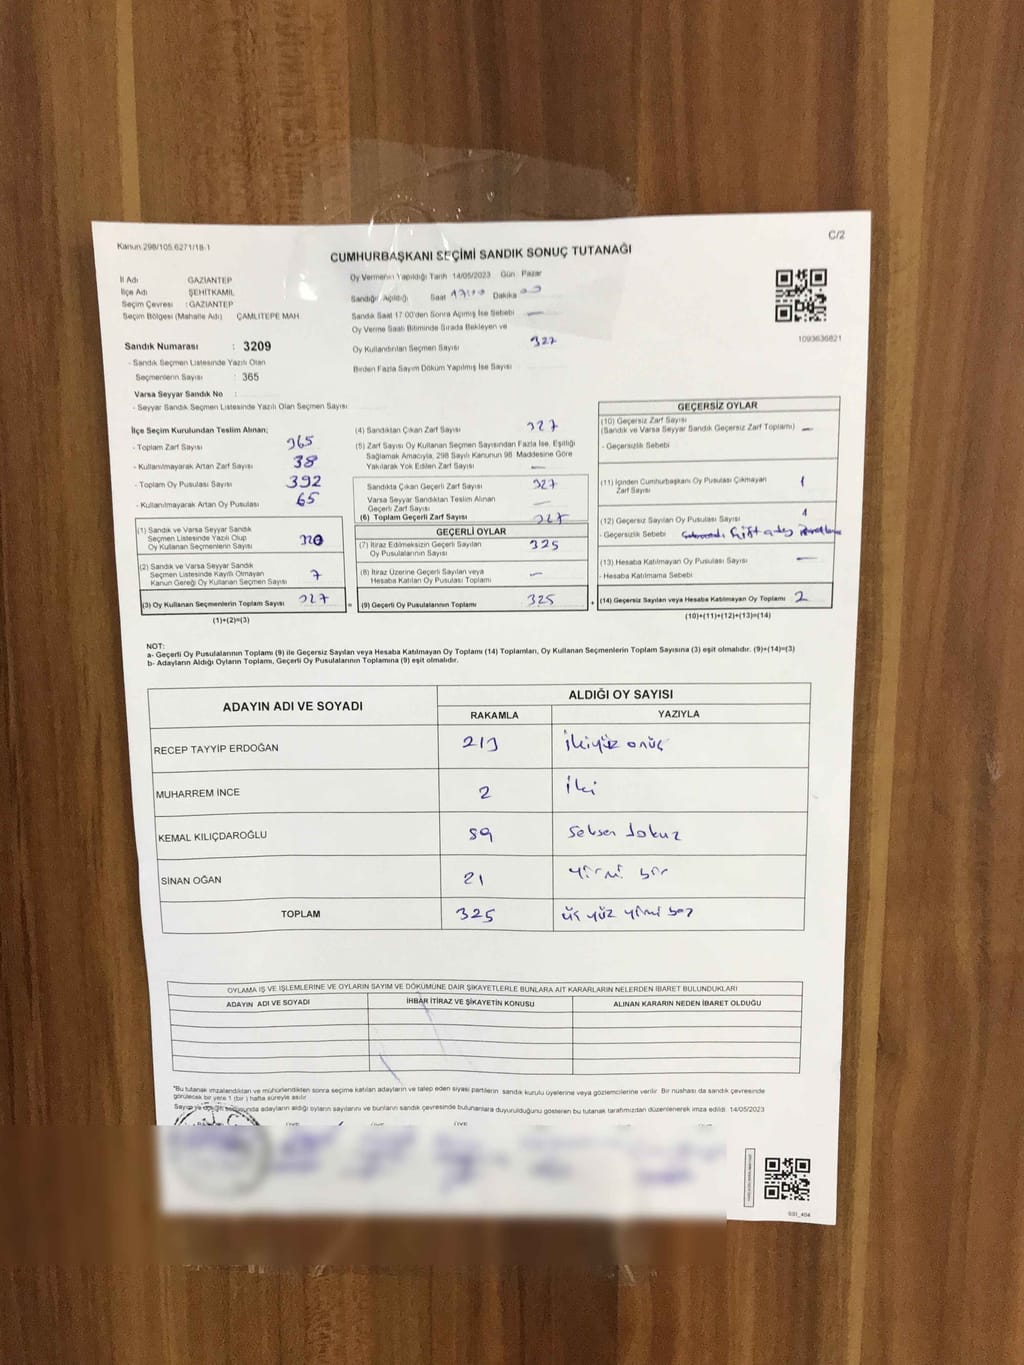 Kanun 298/105.6271/18-1
C/2
CUMHURBAŞKANI SEÇİMİ SANDIK SONUÇ TUTANAĞI
İl Adı GAZİANTEP
İlçe Adı ŞEHİTKAMİL
Seçim Çevresi : GAZİANTEP
Seçim Bölgesi (Mahalle Adı) ÇAMLITEPE MAH
Sandık Numarası : 3209
- Sandık Seçmen Listesinde Yazılı Olan
Seçmenlerin Sayısı : 365
Varsa Seyyar Sandık No :
- Seyyar Sandık Seçmen Listesinde Yazılı Olan Seçmen Sayısı :
Oy Vermenin Yapıldığı Tarih 14/05/2023 Gün Pazar
Sandığın Açıldığı Saat 17:00 Dakika 00
Sandık Saat 17.00'den Sonra Açılmış İse Sebebi —
Oy Verme Saati Bitiminde Sırada Bekleyen ve
Oy Kullandırılan Seçmen Sayısı 327
Birden Fazla Sayım Döküm Yapılmış İse Sayısı
1093636821
İlçe Seçim Kurulundan Teslim Alınan;
- Toplam Zarf Sayısı 365
- Kullanılmayarak Artan Zarf Sayısı 38
- Toplam Oy Pusulası Sayısı 392
- Kullanılmayarak Artan Oy Pusulası 65
(1) Sandık ve Varsa Seyyar Sandık
Seçmen Listesinde Yazılı Olup
Oy Kullanan Seçmenlerin Sayısı 320
(2) Sandık ve Varsa Seyyar Sandık
Seçmen Listesinde Kayıtlı Olmayan
Kanun Gereği Oy Kullanan Seçmen Sayısı 7
(3) Oy Kullanan Seçmenlerin Toplam Sayısı 327
(1)+(2)=(3)
(4) Sandıktan Çıkan Zarf Sayısı 327
(5) Zarf Sayısı Oy Kullanan Seçmen Sayısından Fazla İse, Eşitliği
Sağlamak Amacıyla, 298 Sayılı Kanunun 98. Maddesine Göre
Yakılarak Yok Edilen Zarf Sayısı —
Sandıkta Çıkan Geçerli Zarf Sayısı 327
Varsa Seyyar Sandıktan Teslim Alınan
Geçerli Zarf Sayısı —
(6) Toplam Geçerli Zarf Sayısı 327
GEÇERLİ OYLAR
(7) İtiraz Edilmeksizin Geçerli Sayılan
Oy Pusulalarının Sayısı 325
(8) İtiraz Üzerine Geçerli Sayılan veya
Hesaba Katılan Oy Pusulaları Toplamı —
= (9) Geçerli Oy Pusulalarının Toplamı 325 +
GEÇERSİZ OYLAR
(10) Geçersiz Zarf Sayısı
(Sandık ve Varsa Seyyar Sandık Geçersiz Zarf Toplamı) —
- Geçersizlik Sebebi
(11) İçinden Cumhurbaşkanı Oy Pusulası Çıkmayan
Zarf Sayısı 1
(12) Geçersiz Sayılan Oy Pusulası Sayısı 1
- Geçersizlik Sebebi
(13) Hesaba Katılmayan Oy Pusulası Sayısı —
- Hesaba Katılmama Sebebi
(14) Geçersiz Sayılan veya Hesaba Katılmayan Oy Toplamı 2
(10)+(11)+(12)+(13)=(14)
NOT:
a- Geçerli Oy Pusulalarının Toplamı (9) ile Geçersiz Sayılan veya Hesaba Katılmayan Oy Toplamı (14) Toplamları, Oy Kullanan Seçmenlerin Toplam Sayısına (3) eşit olmalıdır. (9)+(14)=(3)
b- Adayların Aldığı Oyların Toplamı, Geçerli Oy Pusulalarının Toplamına (9) eşit olmalıdır.
ADAYIN ADI VE SOYADI ALDIĞI OY SAYISI
RAKAMLA YAZIYLA
RECEP TAYYİP ERDOĞAN 213 ikiyüz onüç
MUHARREM İNCE 2 iki
KEMAL KILIÇDAROĞLU 89 seksen dokuz
SİNAN OĞAN 21 yirmi bir
TOPLAM 325 üç yüz yirmi beş
OYLAMA İŞ VE İŞLEMLERİNE VE OYLARIN SAYIM VE DÖKÜMÜNE DAİR ŞİKAYETLERLE BUNLARA AİT KARARLARIN NELERDEN İBARET BULUNDUKLARI
ADAYIN ADI VE SOYADI İHBAR İTİRAZ VE ŞİKAYETİN KONUSU ALINAN KARARIN NEDEN İBARET OLDUĞU
"Bu tutanak imzalandıktan ve mühürlendikten sonra seçime katılan adayların ve talep eden siyasi partilerin sandık kurulu üyelerine veya gözlemcilerine verilir. Bir nüshası da sandık çevresinde
görülecek bir yere 1 (bir) hafta süreyle asılır
Sayım ve döküm sonucunda adayların aldığı oyların sayılarını ve bunların sandık çevresinde bulunanlara duyurulduğunu gösteren bu tutanak tarafımızdan düzenlenerek imza edildi. 14/05/2023